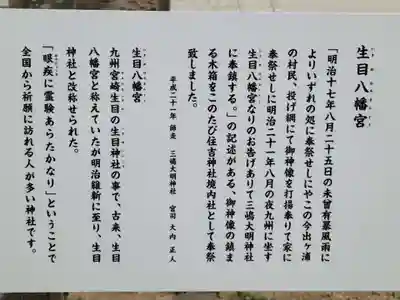 生目八幡宮
「明治十七年八月二十五日の未曾有暴風雨に
よりいずれの処に奉祭せしにやこの今出ヶ浦
の村民、投げ網にて御神像を打揚奉りて家に
奉祭せしに明治二十一年八月の夜九州に坐す
生目八幡宮なりのお告げありて三嶋大明神社
に奉鎮する。」の記述がある、御神像の鎮ま
る木箱をこのたび住吉神社境内社として奉祭
致しました。
平成二十一年 師走 三嶋大明神社 宮司 大内 正人
生目八幡宮
九州宮崎生目の生目神社の事で、古来、生目
八幡宮と称えていたが明治維新に至り、生目
神社と改称せられた。
「眼疾に霊験あらたかなり」ということで
全国から祈願に訪れる人が多い神社です。